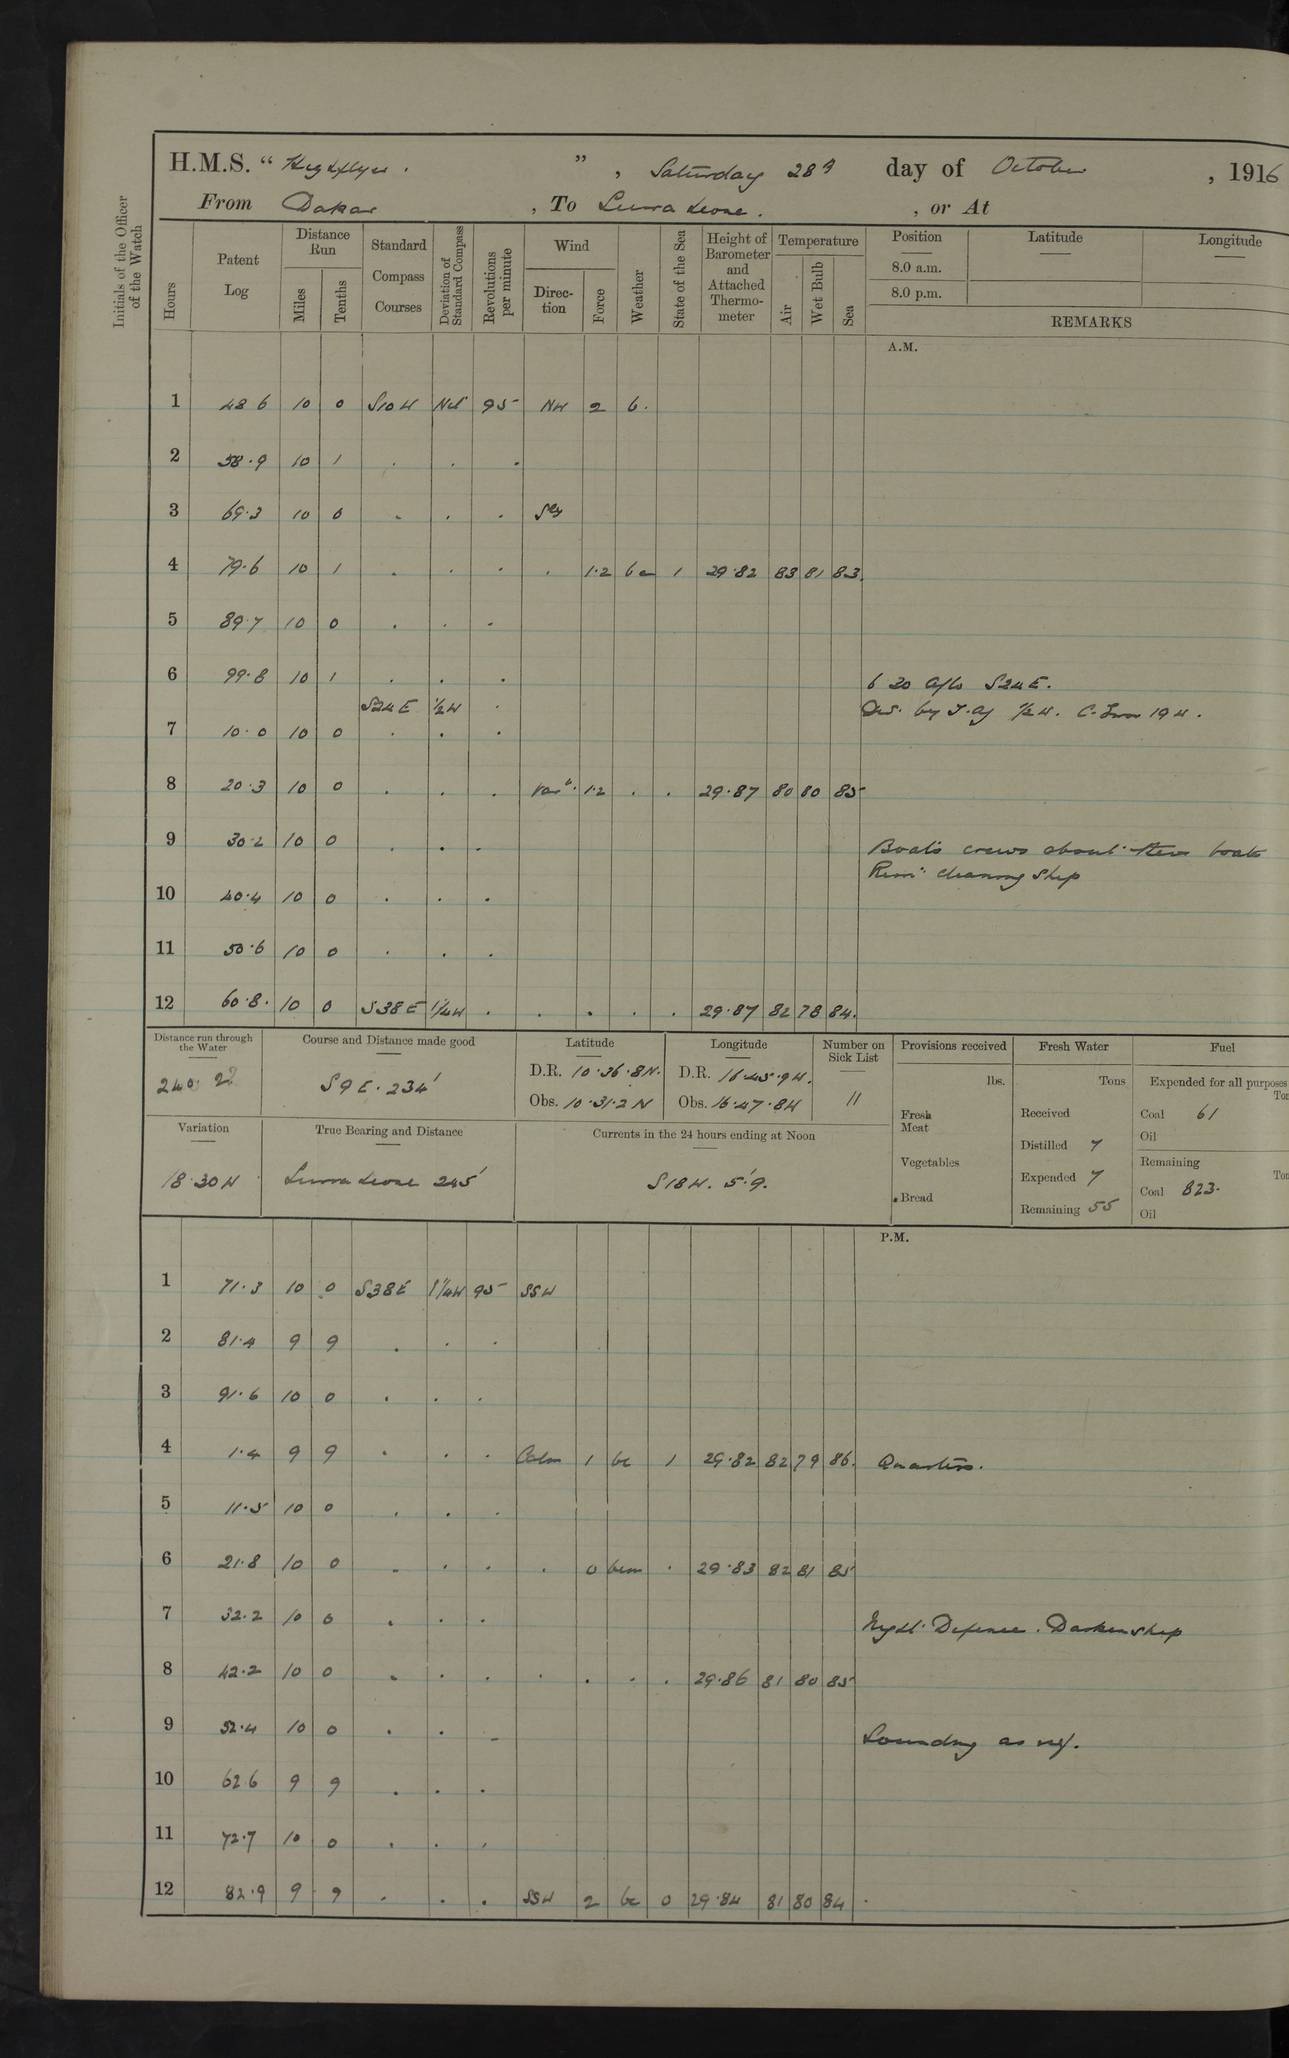 H.M.S. “ Highflyer. ”, Saturday 28th day of October, 1916
From Dakar, To Sierra Leone., or At
Initials of the Officer of the Watch
Hours Patent Log Distance Run Miles Tenths Standard Compass Courses Deviation of Standard Compass Revolutions per minute Wind Direction Force Weather State of the Sea Height of Barometer and Attached Thermometer Temperature Air Wet Bulb Sea Position Latitude Longitude
8.0 a.m.
8.0 p.m.
REMARKS
A.M.
1 48.6 10 0 S10W Nil 95 NW 2 b.
2 58.9 10 1 . . .
3 69.3 10 0 . . . Sly
4 79.6 10 1 . . . . 1.2 bc 1 29.82 83 81 83.
5 89.7 10 0 . . .
6 99.8 10 1 . . .
6 20 A/Co S24E.
S24E ½W .
Dev. by T. Az ½W. C. Error 19W.
7 10.0 10 0 . . .
8 20.3 10 0 . . . Var. 1.2 . . 29.87 80 80 85
9 30.2 10 0 . . .
Boats crews about their boats
Remr cleaning Ship
10 40.4 10 0 . . .
11 50.6 10 0 . . .
12 60.8. 10 0 S38E 1¼W . . . . . 29.87 82 78 84.
Distance run through the Water Course and Distance made good Latitude Longitude Number on Sick List Provisions received Fresh Water Fuel
240. 22 S9E. 234' D.R. 10.36.8N. D.R. 16.45.9W. 11 lbs. Tons Expended for all purposes
Obs. 10.31.2N Obs. 16.47.8W Fresh Meat Received Coal 61
Oil
Variation True Bearing and Distance Currents in the 24 hours ending at Noon Distilled 7
Vegetables Remaining
18.30W Sierra Leone 245' S18W. 5'.9. Expended 7 Coal 823.
Bread Remaining 55 Oil
P.M.
1 71.3 10 0 S38E 1¼W 95 SSW
2 81.4 9 9 . . .
3 91.6 10 0 . . .
4 1.4 9 9 . . . Calm 1 bc 1 29.82 82 79 86. Quarters.
5 11.5 10 0 . . .
6 21.8 10 0 . . . . 0 bcm . 29.83 82 81 85
7 32.2 10 0 . . .
Night Defence. Darken ship
8 42.2 10 0 . . . . . . . 29.86 81 80 85
9 52.4 10 0 . . .
Sounding as req.
10 62.6 9 9 . . .
11 72.7 10 0 . . .
12 82.9 9 9 . . . SSW 2 bc 0 29.84 81 80 84